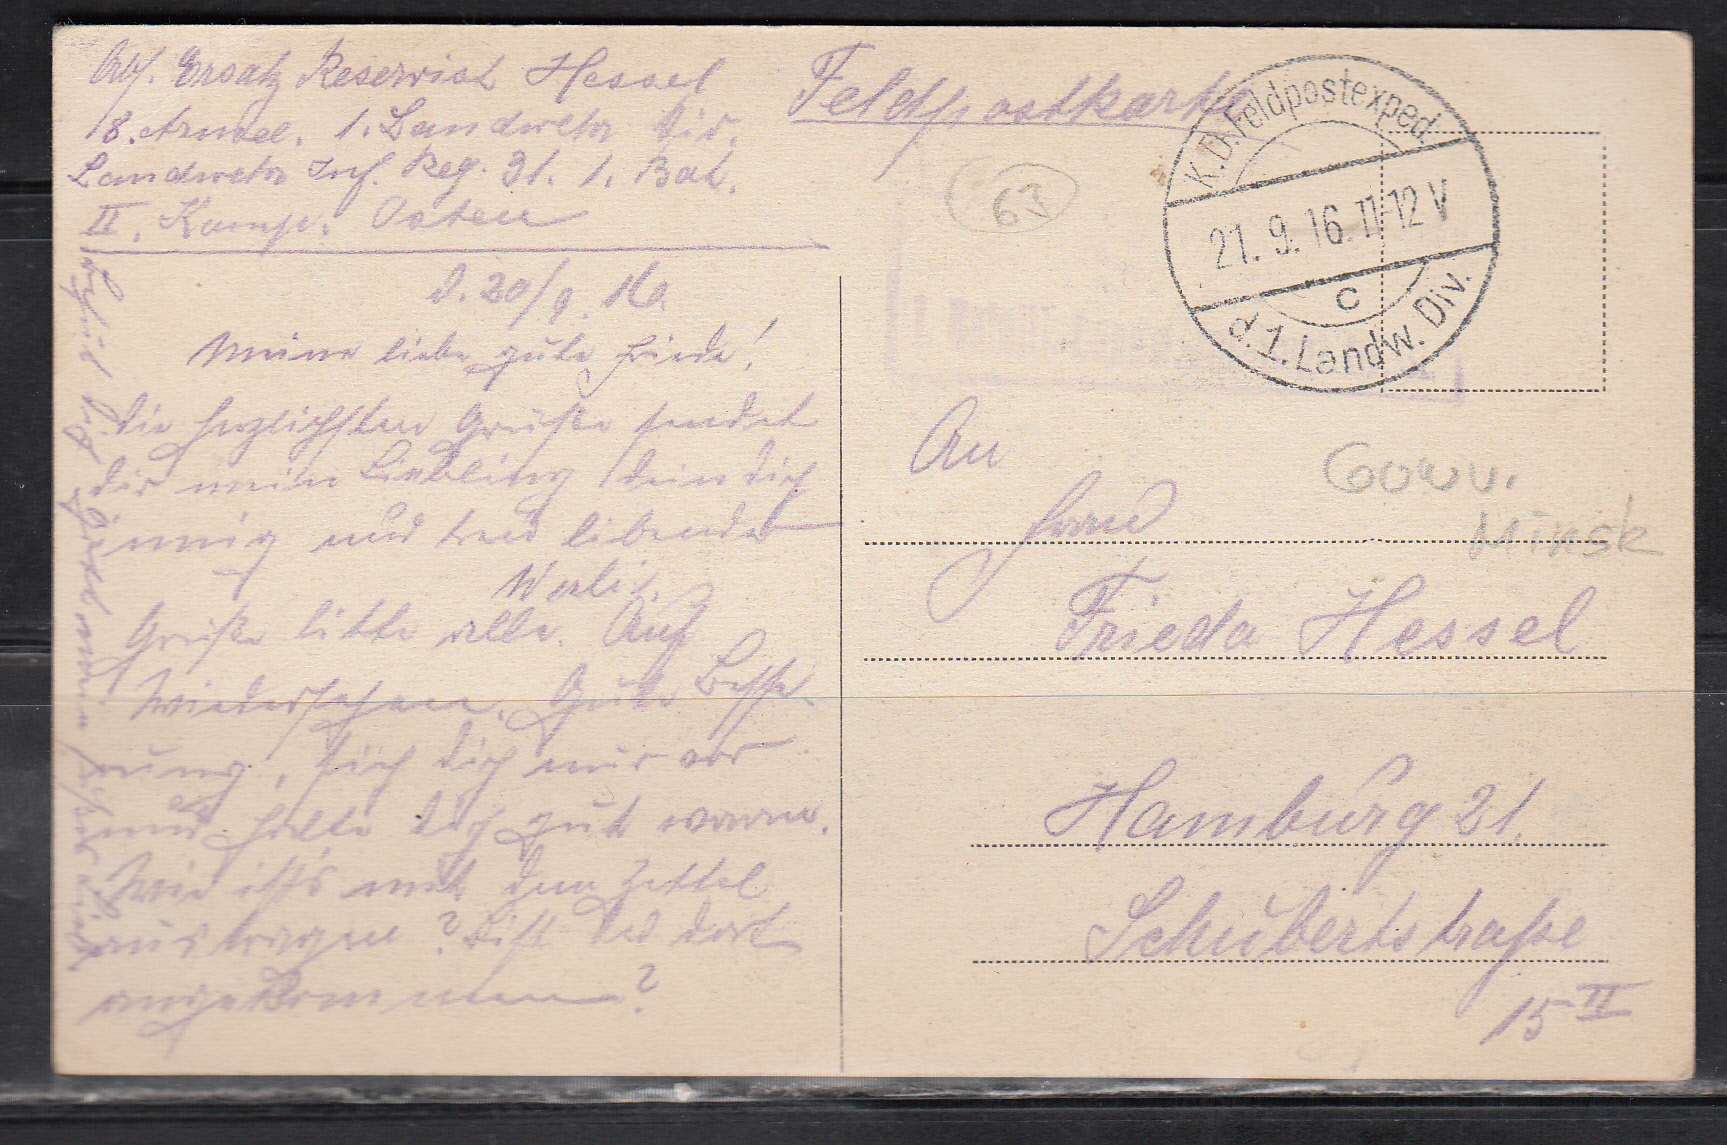 Abs. Ersatz Reservist Hessel
8. Armee. 1. Landwehr Div.
Landwehr Inf. Reg. 31. 1. Bat.
II. Komp. Osten
Feldpostkarte
K.D. Feldpostexped.
21. 9. 16. 11-12 V
c
d. 1. Landw. Div.
63
d. 20/9. 16.
Meine liebe gute Frieda!
Die herzlichsten Grüße sendet
dir mein Liebling dein dich
innig und treu liebender
Grüße bitte alle. Auf
Wiedersehen. Gute Besse-
rung, sieh dich nur vor
und halte dich gut warm.
Wie ist's mit dem Zettel
austragen? Ist das dort
angekommen?
An
Frau
Frieda Hessel
Hamburg 21.
Schubertstraße
15 II
Gouv.
Minsk